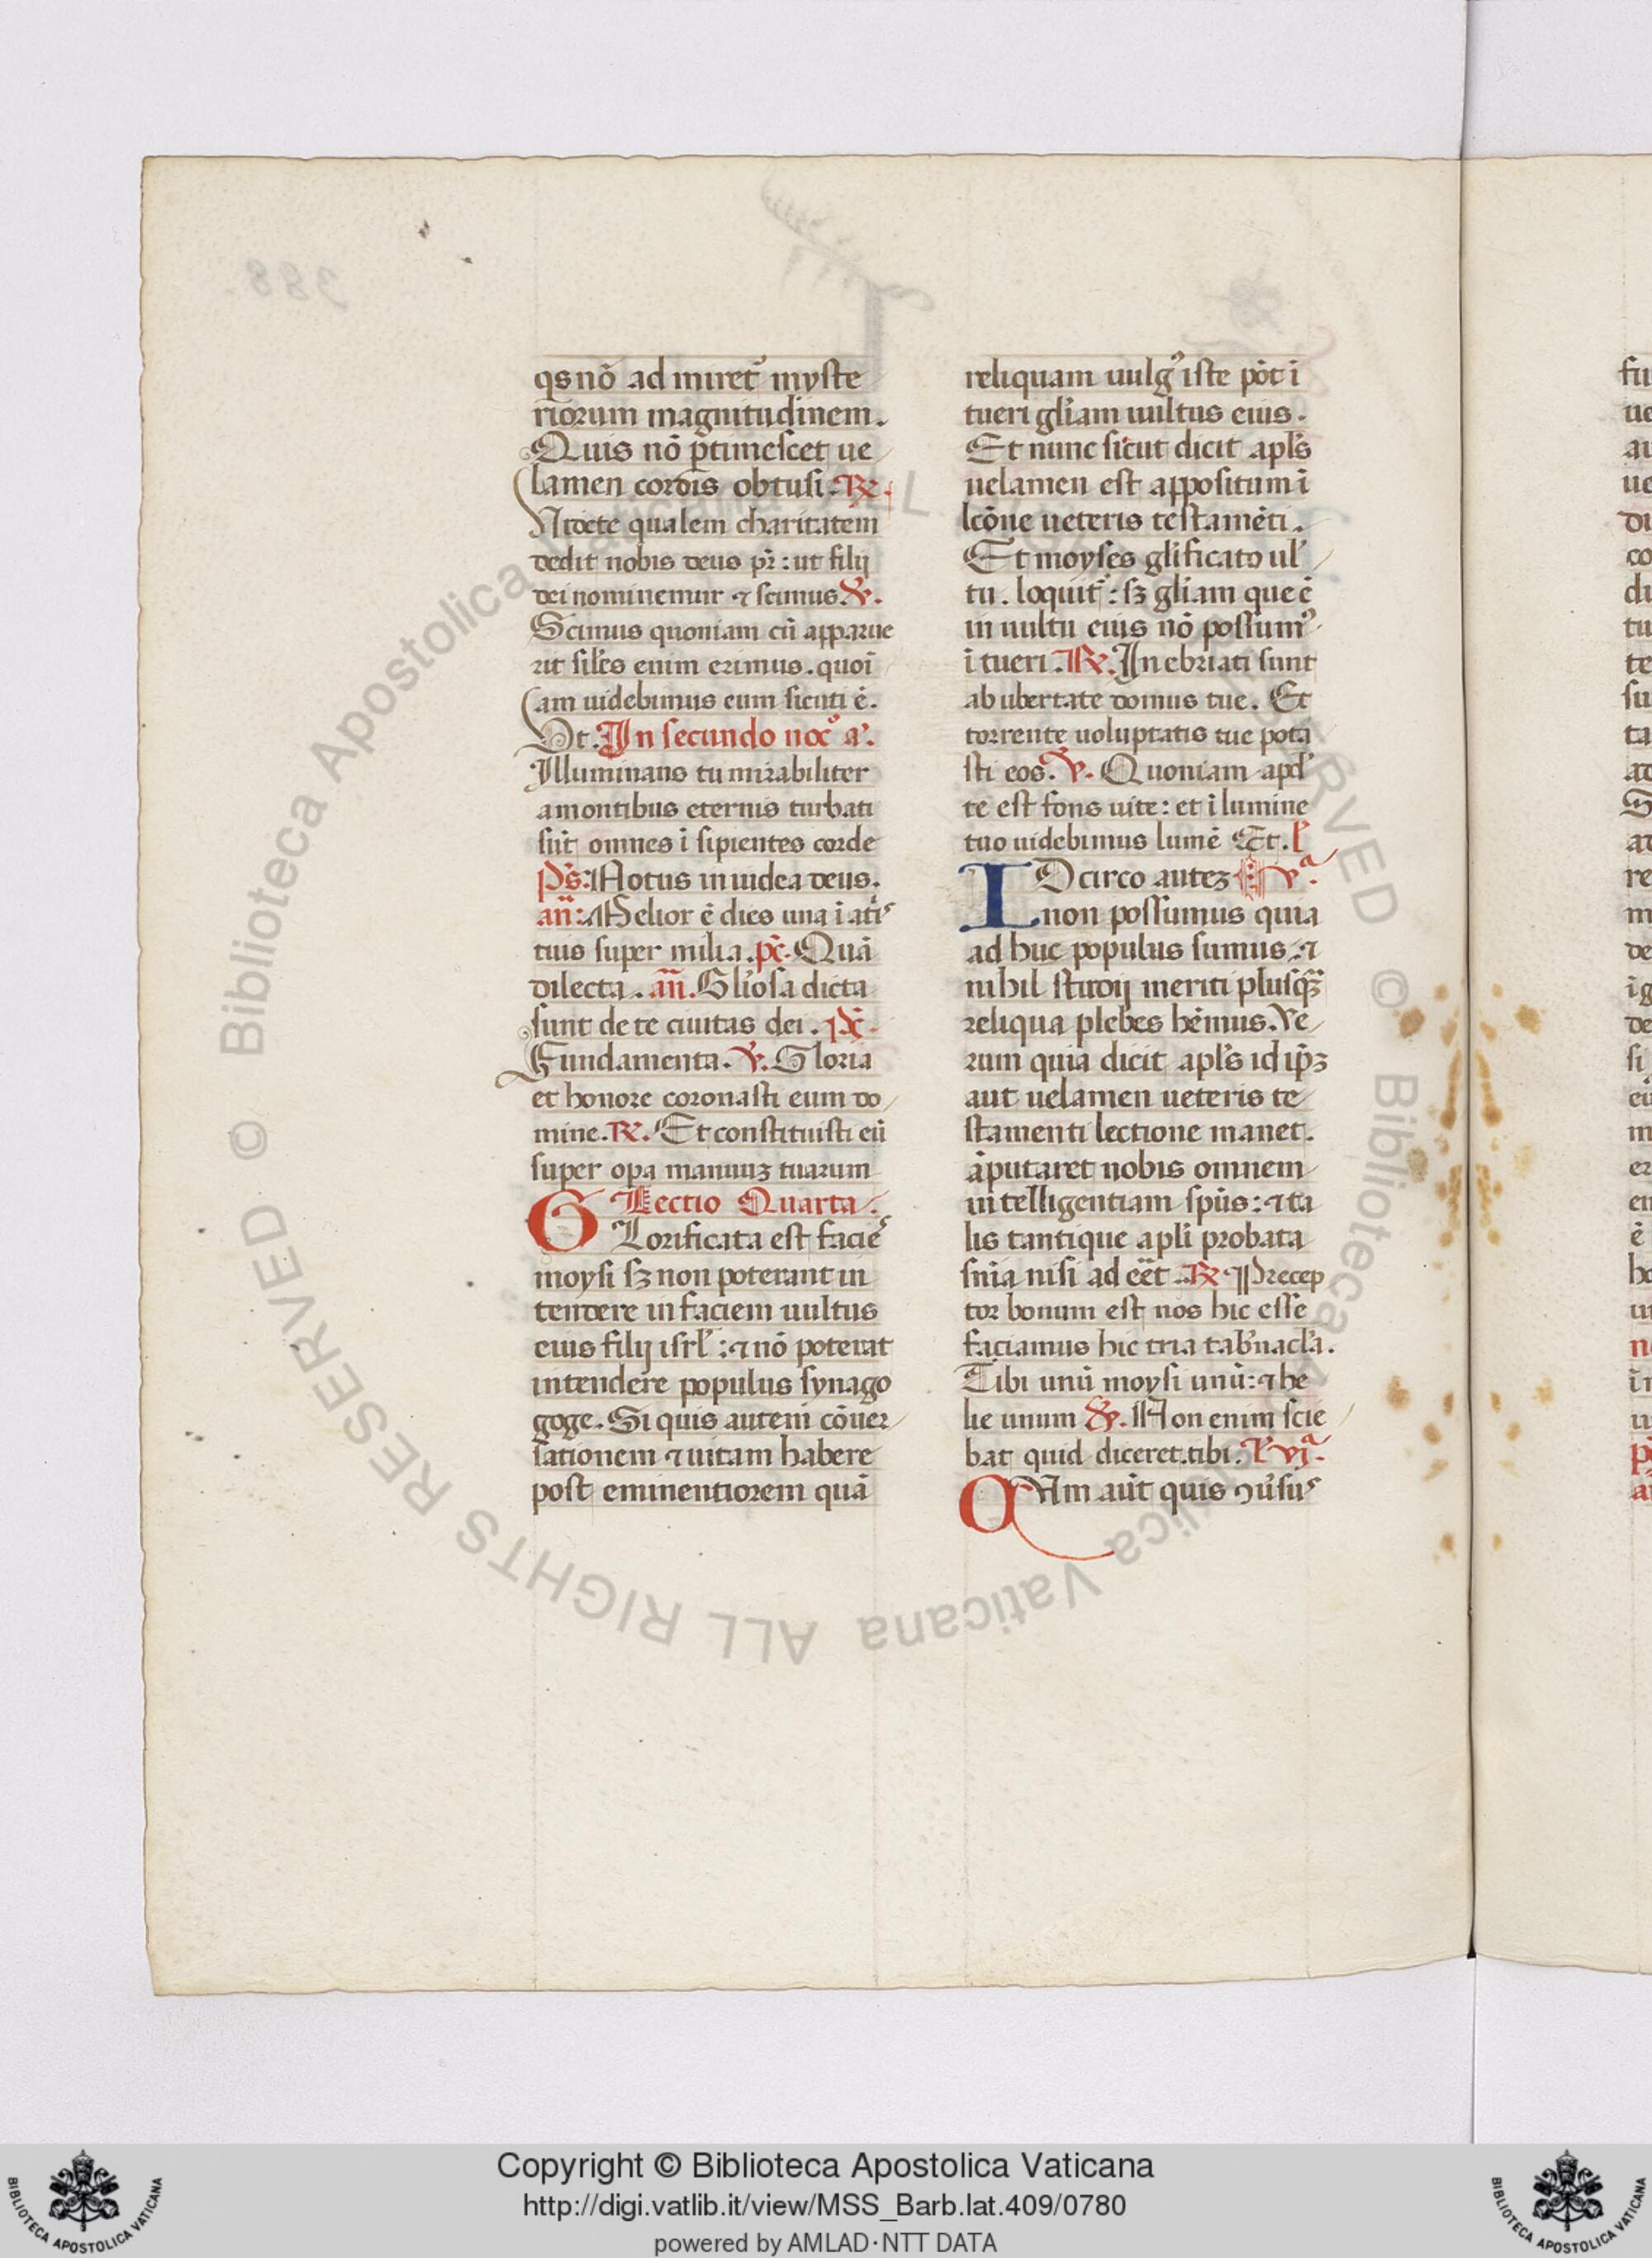 qs nō ad miret᷑ myste
riorum magnitudinem.
Quis nō ꝑtimescet ue
lamen cordis obtusi. ℟.
Uidete qualem charitatem
dedit nobis deus pr̄: ut filij
dei nominemur ⁊ scimus. ℣.
Scimus quoniam cū apparue
rit sil̕es enim erimus. quoī
am uidebimus eum sicuti ē.
Vt. In secundo noc̄ᵒ aᵃ.
Illuminans tu mirabiliter
a montibus eternis turbati
sūt omnes ī sipientes corde
ps̄: Notus in iudea deus.
an̄: Melior ē dies una ī atr̄s
tuis super milia. ps̄. Quā
dilecta. an̄. Gl̕iosa dicta
sunt de te ciuitas dei. ps̄.
Fundamenta. ℣. Gloria
et honore coronasti eum do
mine. ℟. Et constituisti eū
super opa manuuꝫ tuarum
Lectio Quarta.
GLorificata est facieˢ
moysi sꝫ non poterant in
tendere in faciem uultus
eius filij isrl̕: ⁊ nō poterat
intendere populus synago
goge. Si quis autem cōuer
sationem ⁊ uitam habere
post eminentiorem quā
reliquam uulgꝰ iste pōt ī
tueri gl̕iam uultus eius.
Et nunc sicut dicit apl̕s
uelamen est appositum ī
lcōne ueteris testamēti.
Et moyses gl̕ificato ul̕
tu. loquit᷑: sꝫ gl̕iam que ē
in uultu eius nō possumꝰ
ī tueri. ℟. Inebriati sunt
ab ubertate domus tue. Et
torrente uoluptatis tue pota
sti eos. ℣. Quoniam apd̕
te est fons uite: et ī lumine
tuo uidebimus lumē Et. l̕
IDcirco auteꝫ vᵃ.
non possumus quia
ad huc populus sumus, ⁊
nihil studij meriti plusqᷓꝫ
reliqua plebes hēmus. Ve
rum quia dicit apl̕s id ip̄ꝫ
aut uelamen ueteris te
stamenti lectione manet.
āputaret nobis omnem
intelligentiam spūs: ⁊ ta
lis tantique apl̕i probata
sn̄ia nisi ad eēt. ℟. Precep
tor bonum est nos hic esse
faciamus hic tria tab̕nacl̕a.
Tibi unū moysi unū: ⁊ he
lie unum ℣. Non enim scie
bat quid diceret. tibi. l̕ vjᵃ.
QAm aūt quis ꝯu̕susˢ
Copyright © Biblioteca Apostolica Vaticana
http://digi.vatlib.it/view/MSS_Barb.lat.409/0780
powered by AMLAD·NTT DATA
BIBLIOTECA APOSTOLICA VATICANA
BIBLIOTECA APOSTOLICA VATICANA
© Biblioteca Apostolica Vaticana ALL RIGHTS RESERVED